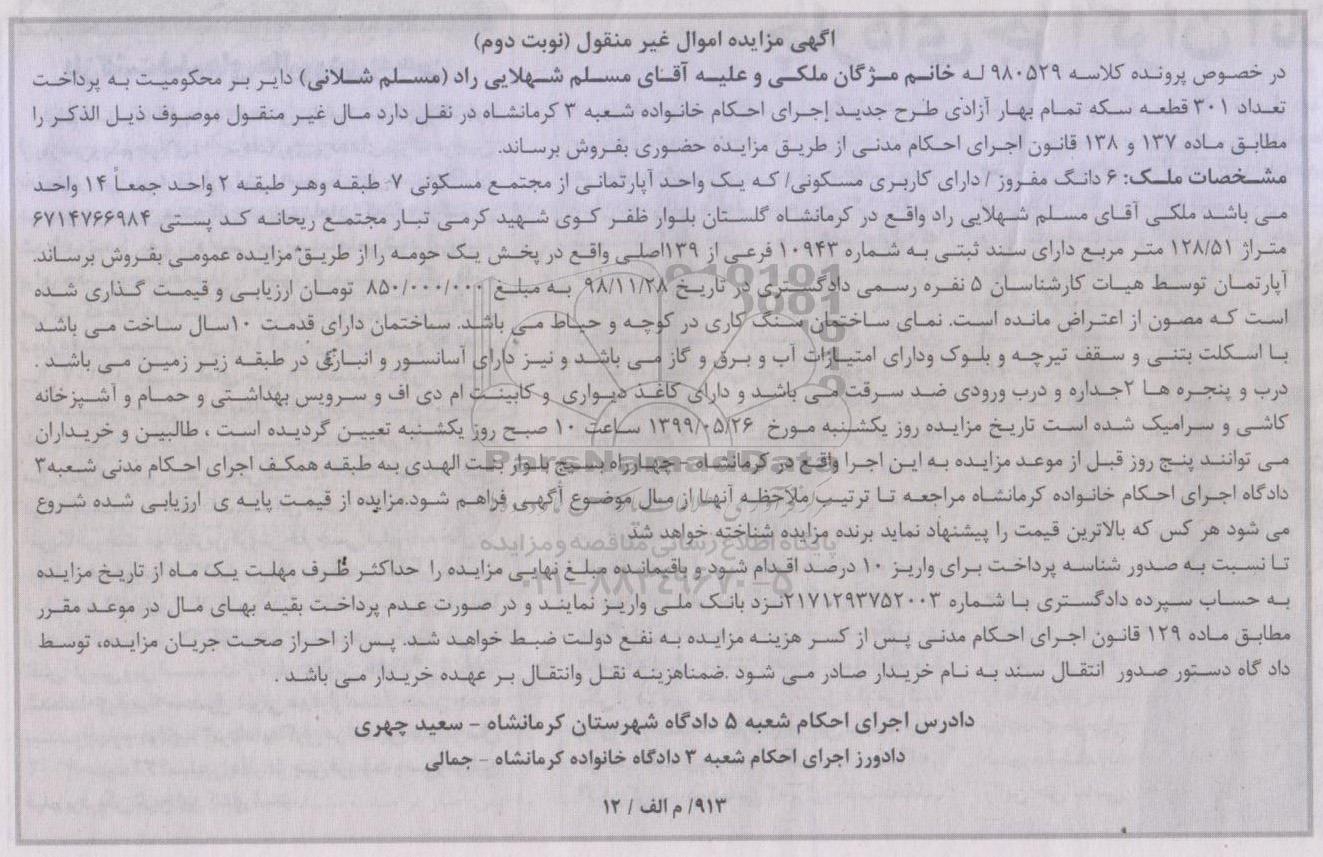 آگهی مزایده اموال غیر منقول (نوبت دوم)
در خصوص پرونده کلاسه ۹۸۰۵۲۹ له خانم مژگان ملکی و علیه آقای مسلم شهلایی راد (مسلم شلانی) دایر بر محکومیت به پرداخت
تعداد ۳۰۱ قطعه سکه تمام بهار آزادی طرح جدید اجرای احکام خانواده شعبه ۳ کرمانشاه در نقل دارد مال غیر منقول موصوف ذیل الذکر را
مطابق ماده ۱۳۷ و ۱۳۸ قانون اجرای احکام مدنی از طریق مزایده حضوری بفروش برساند.
مشخصات ملک: ۶ دانگ مفروز / دارای کاربری مسکونی/ که یک واحد آپارتمانی از مجتمع مسکونی ۷- طبقه وهر طبقه ۲ واحد جمعاً ۱۴ واحد
می باشد ملکی آقای مسلم شهلایی راد واقع در کرمانشاه گلستان بلوار ظفر کوی شهید کرمی تبار مجتمع ریحانه کد پستی ۶۷۱۴۷۶۶۹۸۴
متراژ ۱۲۸/۵۱ متر مربع دارای سند ثبتی به شماره ۱۰۹۴۳ فرعی از ۱۳۹اصلی واقع در پخش یک حومه را از طریق مزایده عمومی بفروش برساند.
آپارتمان توسط هیات کارشناسان ۵ نفره رسمی دادگستری در تاریخ ۹۸/۱۱/۲۸ به مبلغ ۸۵۰/۰۰۰/۰۰۰ تومان ارزیابی و قیمت گذاری شده
است که مصون از اعتراض مانده است. نمای ساختمان سنگ کاری در کوچه و حیاط می باشد. ساختمان دارای قدمت ۱۰سال ساخت می باشد
با اسکلت بتنی و سقف تیرچه و بلوک ودارای امتیازات آب و برق و گاز می باشد و نیز دارای آسانسور و انباری در طبقه زیر زمین می باشد .
درب و پنجره ها ۲جداره و درب ورودی ضد سرقت می باشد و دارای کاغذ دیواری و کابینت ام دی اف و سرویس بهداشتی و حمام و آشپزخانه
کاشی و سرامیک شده است تاریخ مزایده روز یکشنبه مورخ ۱۳۹۹/۰۵/۲۶ ساعت ۱۰ صبح روز یکشنبه تعیین گردیده است ، طالبین و خریداران
می توانند پنج روز قبل از موعد مزایده به این اجرا واقع در کرمانشاه - چهارراه بسیج بلوار بنت الهدی به طبقه همکف اجرای احکام مدنی شعبه۳
دادگاه اجرای احکام خانواده کرمانشاه مراجعه تا ترتیب ملاحظه آنها از مال موضوع آگهی فراهم شود.مزایده از قیمت پایه ی ارزیابی شده شروع
می شود هر کس که بالاترین قیمت را پیشنهاد نماید برنده مزایده شناخته خواهد شد
تا نسبت به صدور شناسه پرداخت برای واریز ۱۰ درصد اقدام شود و باقیمانده مبلغ نهایی مزایده را حداکثر ظرف مهلت یک ماه از تاریخ مزایده
به حساب سپرده دادگستری با شماره ۲۱۷۱۲۹۳۷۵۲۰۰۳نزد بانک ملی واریز نمایند و در صورت عدم پرداخت بقیه بهای مال در موعد مقرر
مطابق ماده ۱۲۹ قانون اجرای احکام مدنی پس از کسر هزینه مزایده به نفع دولت ضبط خواهد شد. پس از احراز صحت جریان مزایده، توسط
داد گاه دستور صدور انتقال سند به نام خریدار صادر می شود .ضمناهزینه نقل وانتقال بر عهده خریدار می باشد .
دادرس اجرای احکام شعبه ۵ دادگاه شهرستان کرمانشاه - سعید چهری
دادورز اجرای احکام شعبه ۳ دادگاه خانواده کرمانشاه - جمالی
۹۱۳/ م الف / ۱۲
ParsNamadData
پایگاه اطلاع رسانی مناقصه و مزایده
۰۲۱-۸۸۳۴۹۶۷۰-۵